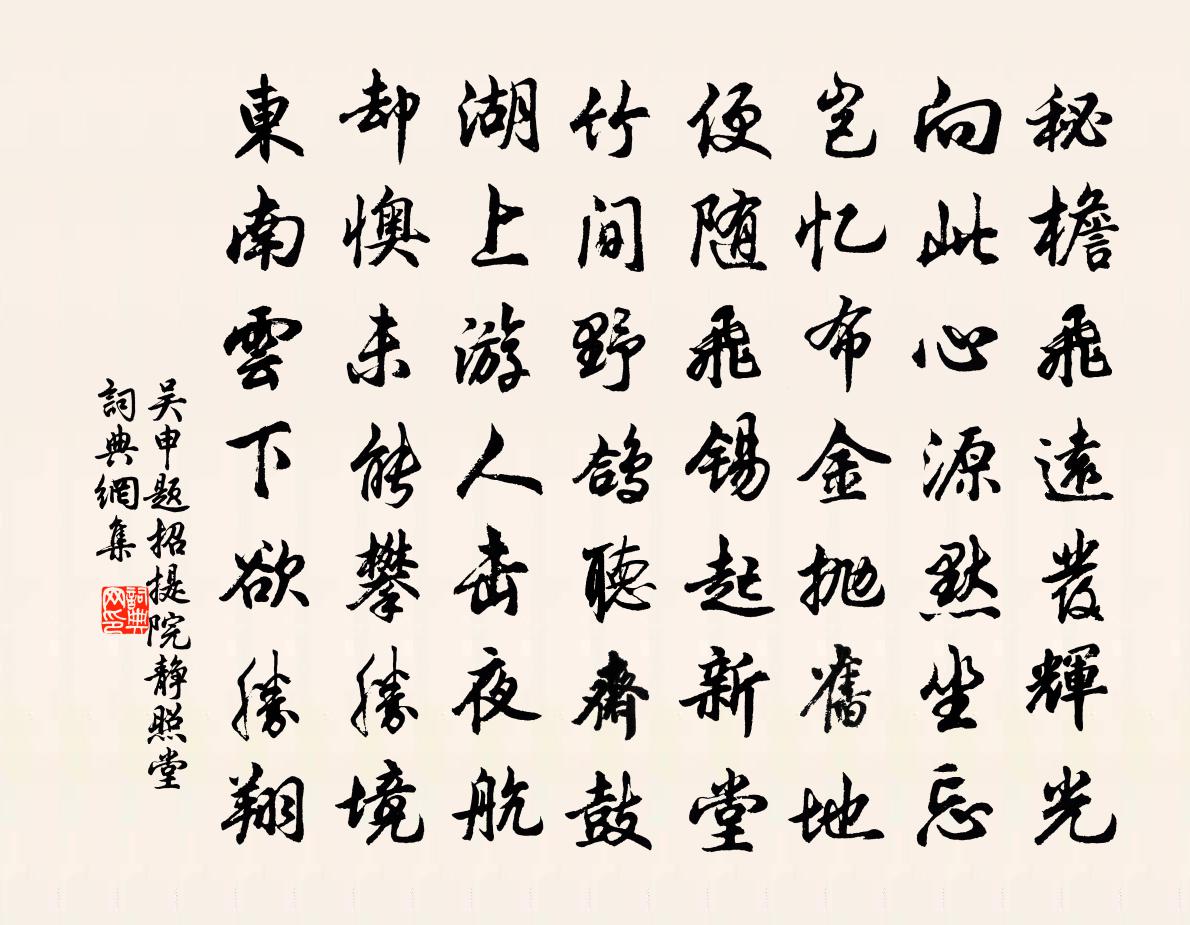 秘檐飛遠發輝光
向此心源默坐忘
豈忆布金抛舊地
便随飛锡起新堂
竹间野鸽聽齋鼓
湖上游人击夜航
却懊未能攀勝境
東南雲下欲勝翔
吴申题招提院静照堂
詞典網集
詞典网印